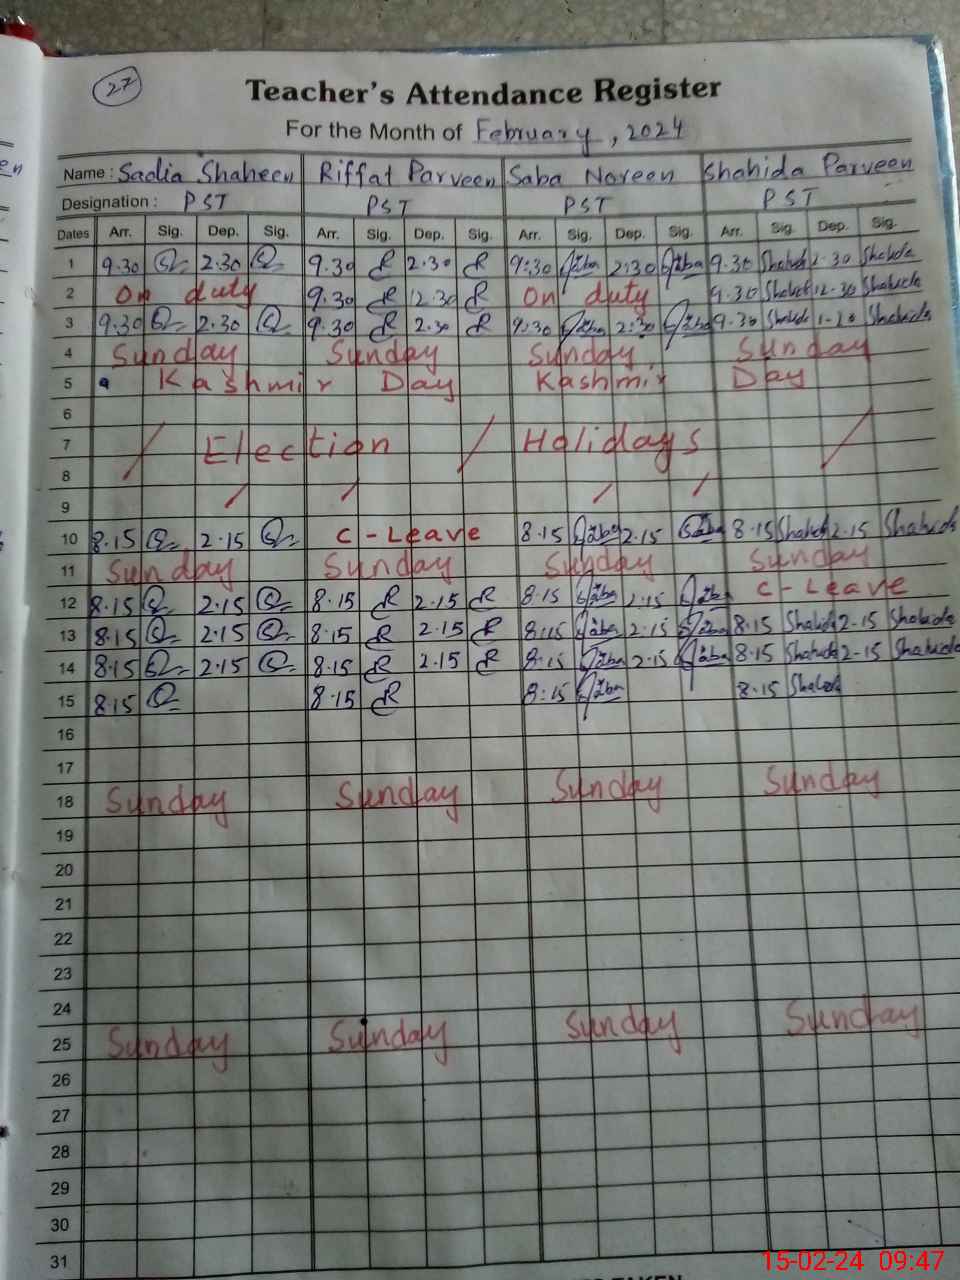 27
Teacher's Attendance Register
For the Month of February, 2024
Name: Sadia Shaheen Riffat Parveen Saba Noreen Shahida Parveen
Designation: PST PST PST PST
Dates Arr. Sig. Dep. Sig. Arr. Sig. Dep. Sig. Arr. Sig. Dep. Sig. Arr. Sig. Dep. Sig.
1 9.30 2.30 9.30 R 2.30 R 9:30 Saba 2:30 Saba 9.30 Shahida 2.30 Shahida
2 On duty 9.30 R 12.30 R On duty 9.30 Shahida 12.30 Shahida
3 9.30 2.30 9.30 R 2.30 R 9:30 Saba 2:30 Saba 9.30 Shahida Shahida
4 Sunday Sunday Sunday Sunday
5 Kashmir Day Kashmir Day
6
7 Election Holidays
8
9
10 8.15 2.15 C-Leave 8.15 Saba 2.15 Saba 8.15 Shahida 2.15 Shahida
11 Sunday Sunday Sunday Sunday
12 8.15 2.15 8.15 R 2.15 R 8.15 Saba 2.15 Saba C-Leave
13 8.15 2.15 8.15 R 2.15 R 8:15 Saba 2.15 Saba 8.15 Shahida 2.15 Shahida
14 8.15 2.15 8.15 R 2.15 R 8.15 Saba 2.15 Saba 8.15 Shahida 2.15 Shahida
15 8.15 8.15 R 8:15 Saba 8.15 Shahida
16
17
18 Sunday Sunday Sunday Sunday
19
20
21
22
23
24
25 Sunday Sunday Sunday Sunday
26
27
28
29
30
31
15-02-24 09:47